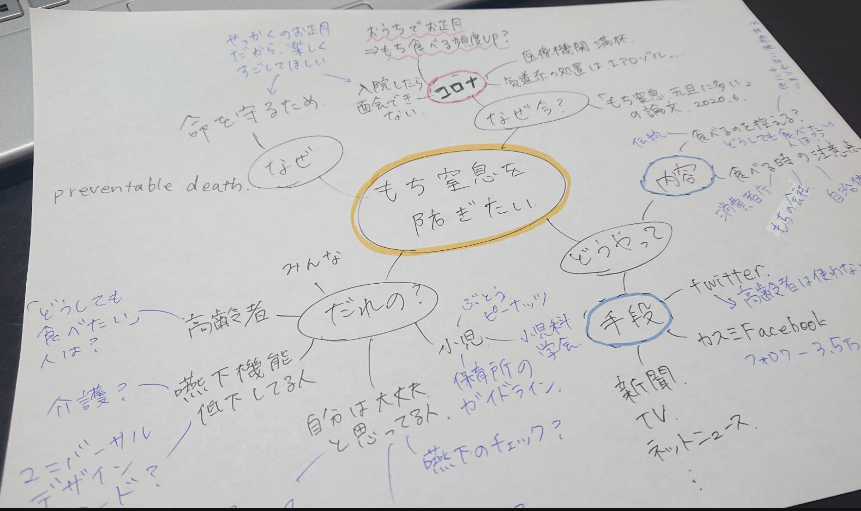 せっかくのお正月
だから、楽しく
すごしてほしい
おうちでお正月
⇒もち食べる頻度up?
入院したら
面会でき
ない。
コロナ
医療機関 満杯
気道系の処置はエアロゾル...
なぜ今?
「もち窒息 元旦に多い」
の論文. 2020.6.
命を守るため
なぜ
preventable death.
もち窒息を
防ぎたい
伝統
食べるのを控える?
どうしても食べたい
人はう
内容
食べる時の注意点
消費者庁
もちの会社
自治体
どうやって
手段
twitter.
高齢者は使わない
カスミFacebook
フォロワー3.5万
新聞
TV.
ネットニュース
⋮
みんな
だれの?
高齢者
「どうしても
食べたい」
人は?
嚥下機能
低下してる人
介護?
ユニバーサル
デザイン
フード?
自分は大丈夫
と思ってる人.
小児
ぶどう
ピーナッツ
小児科
学会
保育所の
ガイドライン.
嚥下のチェック?